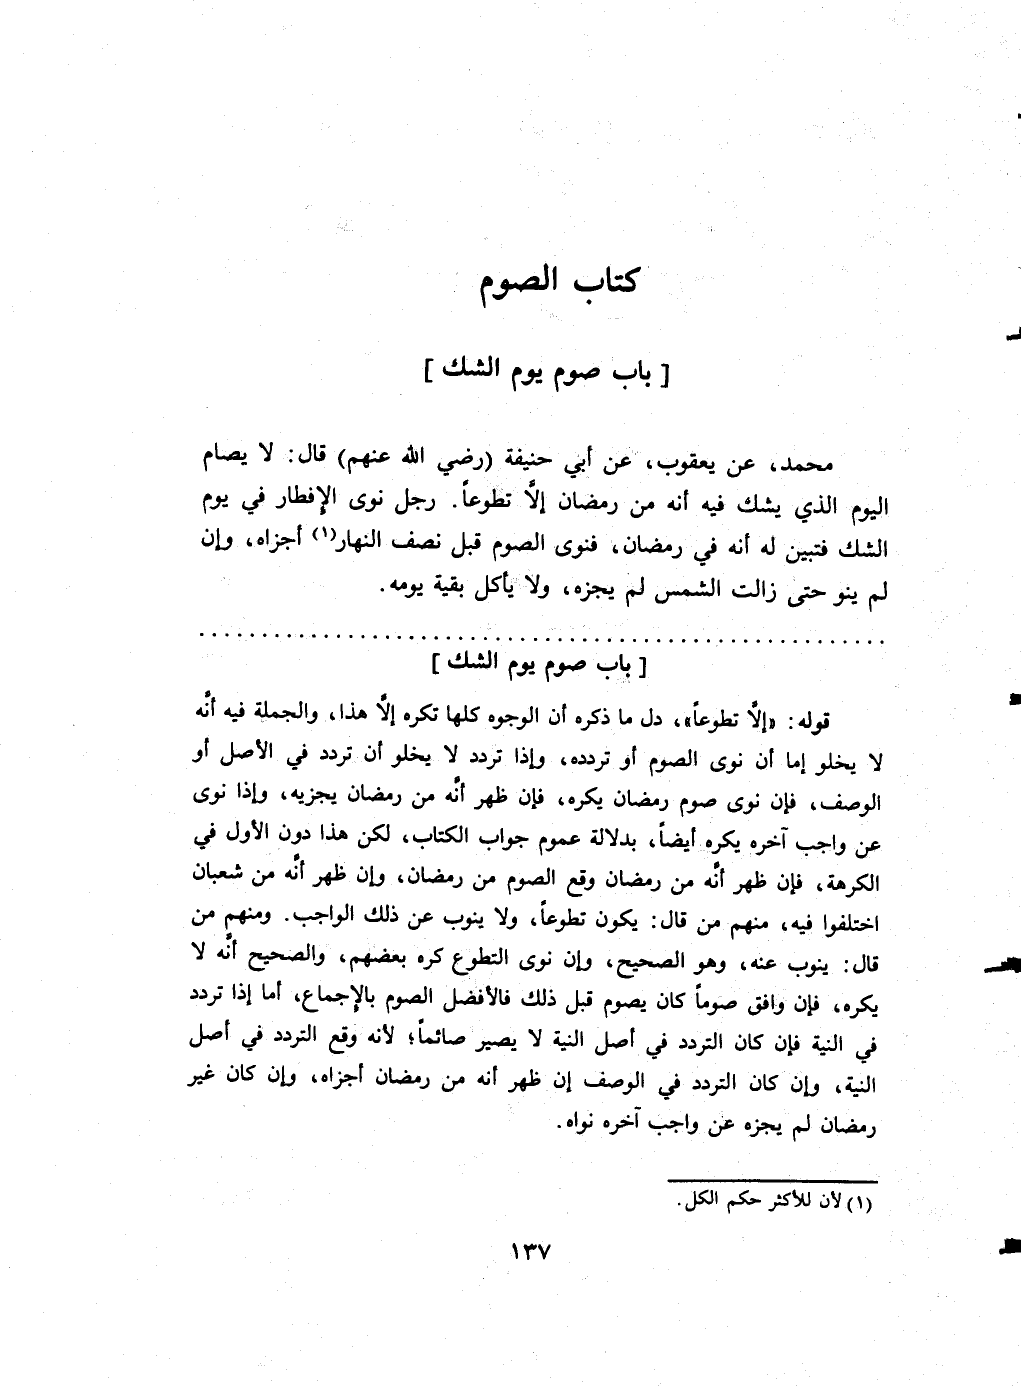 كتاب الصوم
[ باب صوم يوم الشك ]
محمد، عن يعقوب، عن أبي حنيفة (رضي الله عنهم) قال: لا يصام
اليوم الذي يشك فيه أنه من رمضان إلَّا تطوعاً. رجل نوى الإفطار في يوم
الشك فتبين له أنه في رمضان، فنوى الصوم قبل نصف النهار(١) أجزاه، وإن
لم ينو حتى زالت الشمس لم يجزه، ولا يأكل بقية يومه.
[ باب صوم يوم الشك ]
قوله: «إلَّا تطوعاً»، دل ما ذكره أن الوجوه كلها تكره إلَّا هذا، والجملة فيه أنَّه
لا يخلو إما أن نوى الصوم أو تردده، وإذا تردد لا يخلو أن تردد في الأصل أو
الوصف، فإن نوى صوم رمضان يكره، فإن ظهر أنَّه من رمضان يجزيه، وإذا نوى
عن واجب آخره يكره أيضاً، بدلالة عموم جواب الكتاب، لكن هذا دون الأول في
الكرهة، فإن ظهر أنَّه من رمضان وقع الصوم من رمضان، وإن ظهر أنَّه من شعبان
اختلفوا فيه، منهم من قال: يكون تطوعاً، ولا ينوب عن ذلك الواجب. ومنهم من
قال: ينوب عنه، وهو الصحيح، وإن نوى التطوع كره بعضهم، والصحيح أنَّه لا
يكره، فإن وافق صوماً كان يصوم قبل ذلك فالأفضل الصوم بالإجماع، أما إذا تردد
في النية فإن كان التردد في أصل النية لا يصير صائماً؛ لأنه وقع التردد في أصل
النية، وإن كان التردد في الوصف إن ظهر أنه من رمضان أجزاه، وإن كان غير
رمضان لم يجزه عن واجب آخره نواه.
(١) لأن للأكثر حكم الكل.
١٣٧